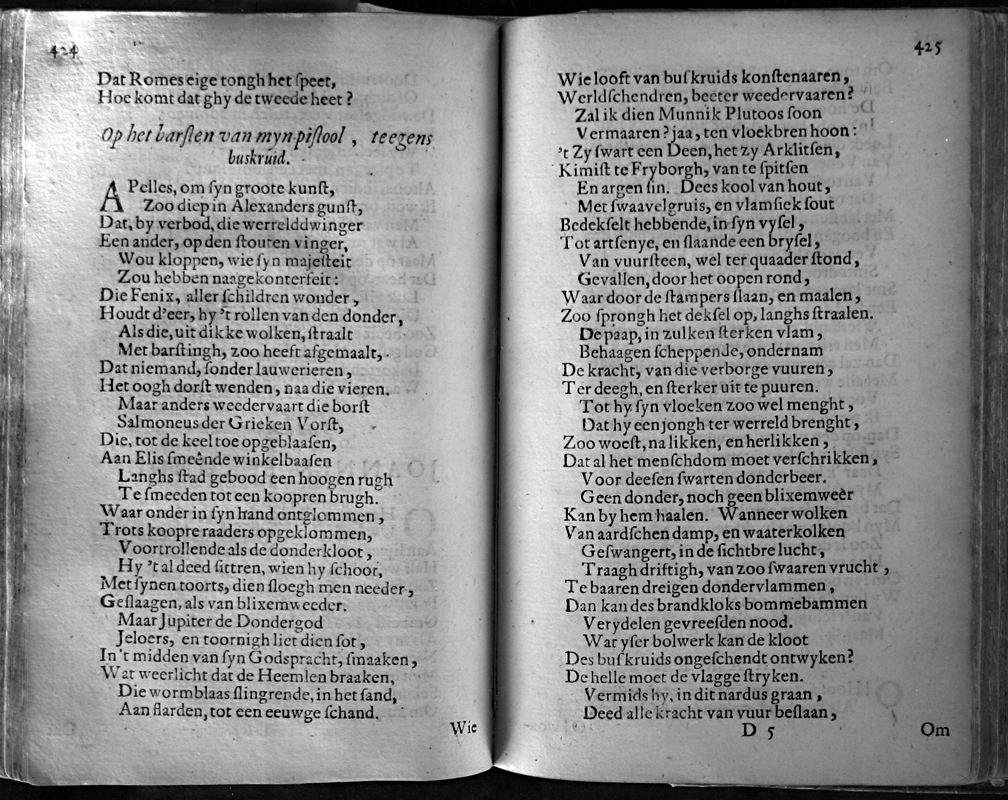 424
Dat Romes eige tongh het ſpeet,
Hoe komt dat ghy de tweede heet?
Op het barſten van myn piſtool, teegens
buskruid.
APelles, om ſyn groote kunſt,
Zoo diep in Alexanders gunſt,
Dat, by verbod, die werrelddwinger
Een ander, op den ſtouten vinger,
Wou kloppen, wie ſyn majeſteit
Zou hebben naagekonterfeit:
Die Fenix, aller ſchildren wonder,
Houdt d'eer, hy 't rollen van den donder,
Als die, uit dikke wolken, ſtraalt
Met barſtingh, zoo heeft afgemaalt,
Dat niemand, ſonder lauwerieren,
Het oogh dorſt wenden, naa die vieren.
Maar anders weedervaart die borſt
Salmoneus der Grieken Vorſt,
Die, tot de keel toe opgeblaaſen,
Aan Elis ſmeênde winkelbaaſen
Langhs ſtad gebood een hoogen rugh
Te ſmeeden tot een koopren brugh.
Waar onder in ſyn hand ontglommen,
Trots koopre raaders opgeklommen,
Voortrollende als de donderkloot,
Hy 't al deed ſittren, wien hy ſchoot,
Met ſynen toorts, dien ſloegh men needer,
Geſlaagen, als van blixemweeder.
Maar Jupiter de Dondergod
Jeloers, en toornigh liet dien ſot,
In 't midden van ſyn Godspracht, ſmaaken,
Wat weerlicht dat de Heemlen braaken,
Die wormblaas ſlingrende, in het ſand,
Aan flarden, tot een eeuwge ſchand.
Wie
425
Wie looft van buſkruids konſtenaaren,
Werldſchendren, beeter weedervaaren?
Zal ik dien Munnik Plutoos ſoon
Vermaaren? jaa, ten vloekbren hoon:
't Zy ſwart een Deen, het zy Arklitſen,
Kimiſt te Fryborgh, van te ſpitſen
En argen ſin. Dees kool van hout,
Met ſwaavelgruis, en vlamſiek ſout
Bedekſelt hebbende, in ſyn vyſel,
Tot artſenye, en ſlaande een bryſel,
Van vuurſteen, wel ter quaader ſtond,
Gevallen, door het oopen rond,
Waar door de ſtampers ſlaan, en maalen,
Zoo ſprongh het dekſel op, langhs ſtraalen.
De paap, in zulken ſterken vlam,
Behaagen ſcheppende, ondernam
De kracht, van die verborge vuuren,
Ter deegh, en ſterker uit te puuren.
Tot hy ſyn vloeken zoo wel menght,
Dat hy een jongh ter werreld brenght,
Zoo woeſt, na likken, en herlikken,
Dat al het menſchdom moet verſchrikken,
Voor deeſen ſwarten donderbeer.
Geen donder, noch geen blixemweêr
Kan by hem haalen. Wanneer wolken
Van aardſchen damp, en waaterkolken
Geſwangert, in de ſichtbre lucht,
Traagh driftigh, van zoo ſwaaren vrucht,
Te baaren dreigen dondervlammen,
Dan kan des brandkloks bommebammen
Verydelen gevreeſden nood.
Wat yſer bolwerk kan de kloot
Des buſkruids ongeſchendt ontwyken?
De helle moet de vlagge ſtryken.
Vermids hy, in dit nardus graan,
Deed alle kracht van vuur beſlaan,
D 5
Om